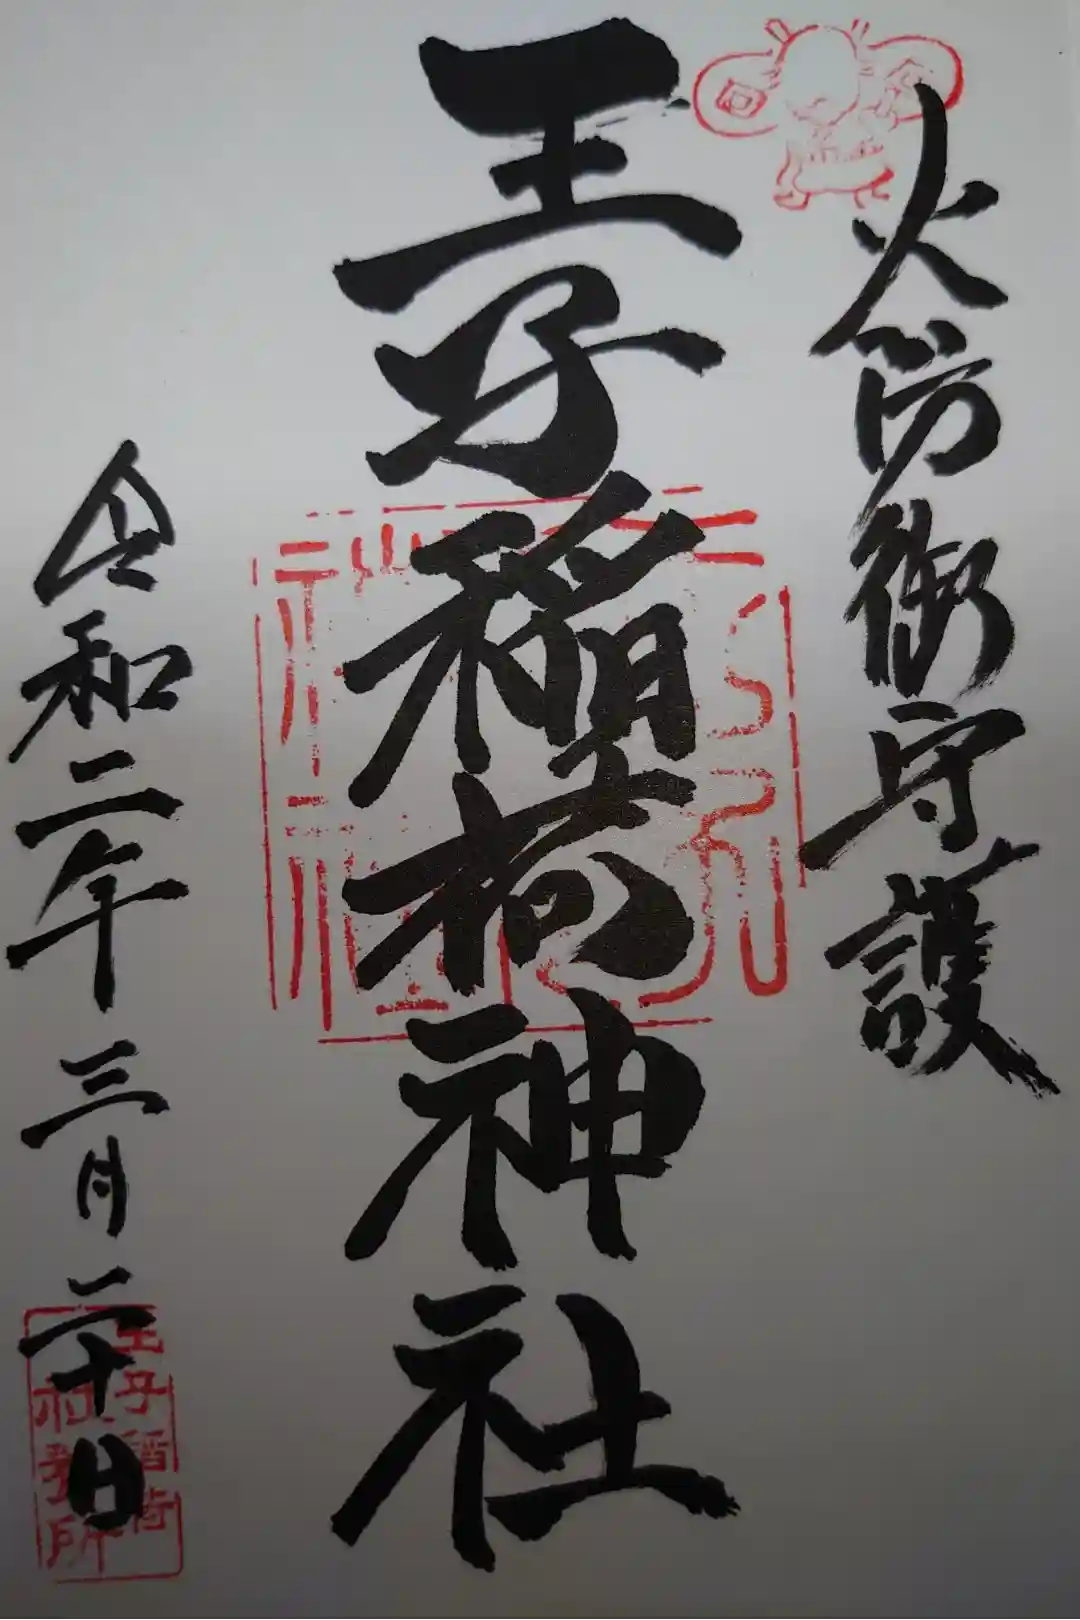 火防御守護
王子稲荷神社
令和二年三月二十日
王子稲荷
社務所